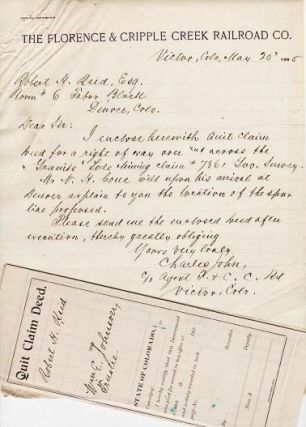 THE FLORENCE & CRIPPLE CREEK RAILROAD CO.
Victor, Colo, May 20
Robert H. Reid, Esq.
Room # 6 Tabor Block
Denver, Colo.
Dear Sir:
I enclose herewith Quit claim
deed for a right of way over and across the
"Granite" Lode Mining claim # 7861 Survey.
Mr. N. H. Cone will upon his arrival at
Denver explain to you the location of the spur
line proposed.
Please send me the enclosed deed after
execution, thereby greatly obliging
Yours very truly
Charles John,
c/o Agent F. & C. C. Rd
Victor, Colo.
Quit Claim Deed.
Robert H. Reid
Wm E. Johnson,
Trustee
STATE OF COLORADO,
I hereby certify that this Instrument
was filed for record in my office at
Recorder.
Deputy.